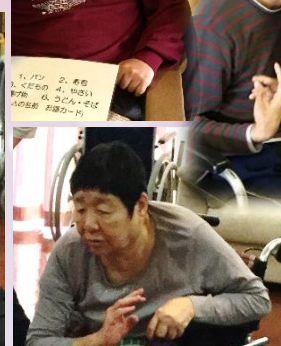 1、パン 2、お寿
、くだもの 4、やさい
6、うどん・そば
の名前 お題カード)